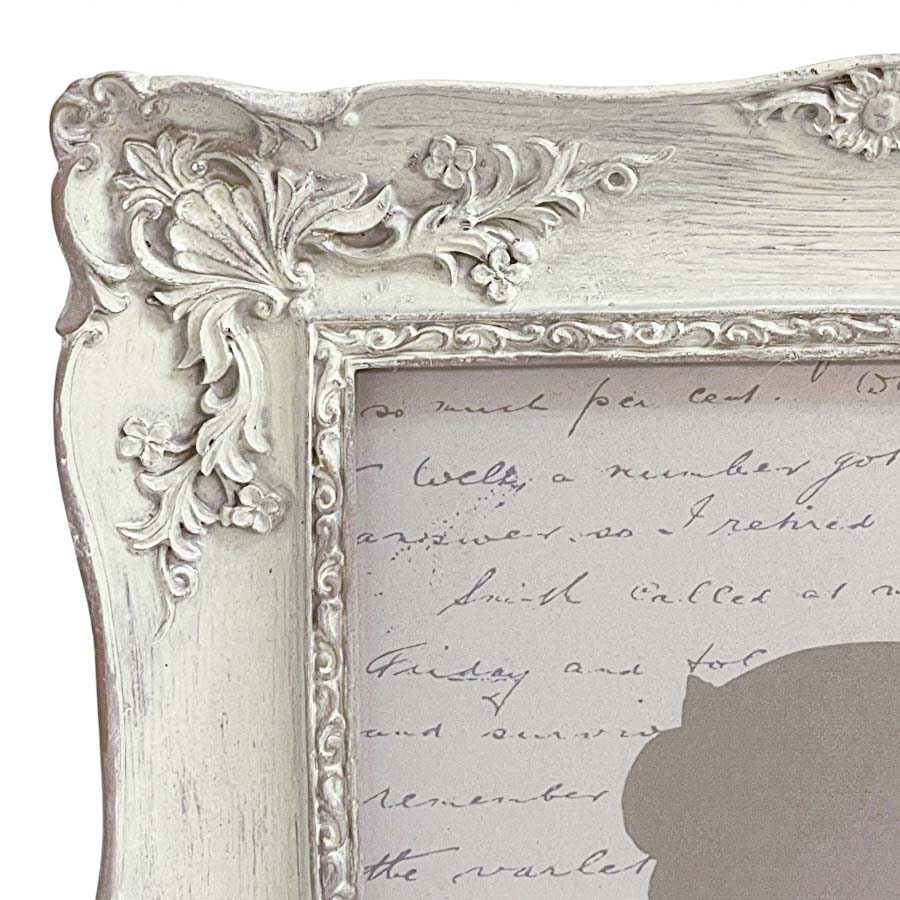 so much per cent.
Well, a number got
answer, so I retired
Smith called at
Friday and tol
and surviv
remember
the varlet